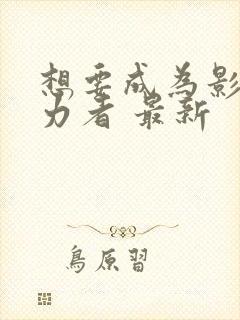 想要成为影
力者 最新
鳥原習